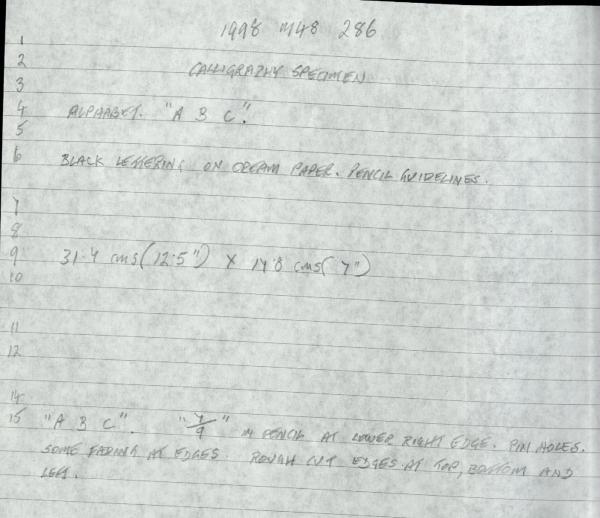 1998 M48 286
1
2 CALLIGRAPHY SPECIMEN
3
4 ALPHABET. "A B C".
5
6 BLACK LETTERING ON CREAM PAPER. PENCIL GUIDELINES.
7
8
9 31·7 cms (12·5") X 17·8 cms (7")
10
11
12
14
15 "A B C". "7/9" IN PENCIL AT LOWER RIGHT EDGE. PIN HOLES.
SOME FADING AT EDGES. ROUGH CUT EDGES AT TOP, BOTTOM AND
LEFT.